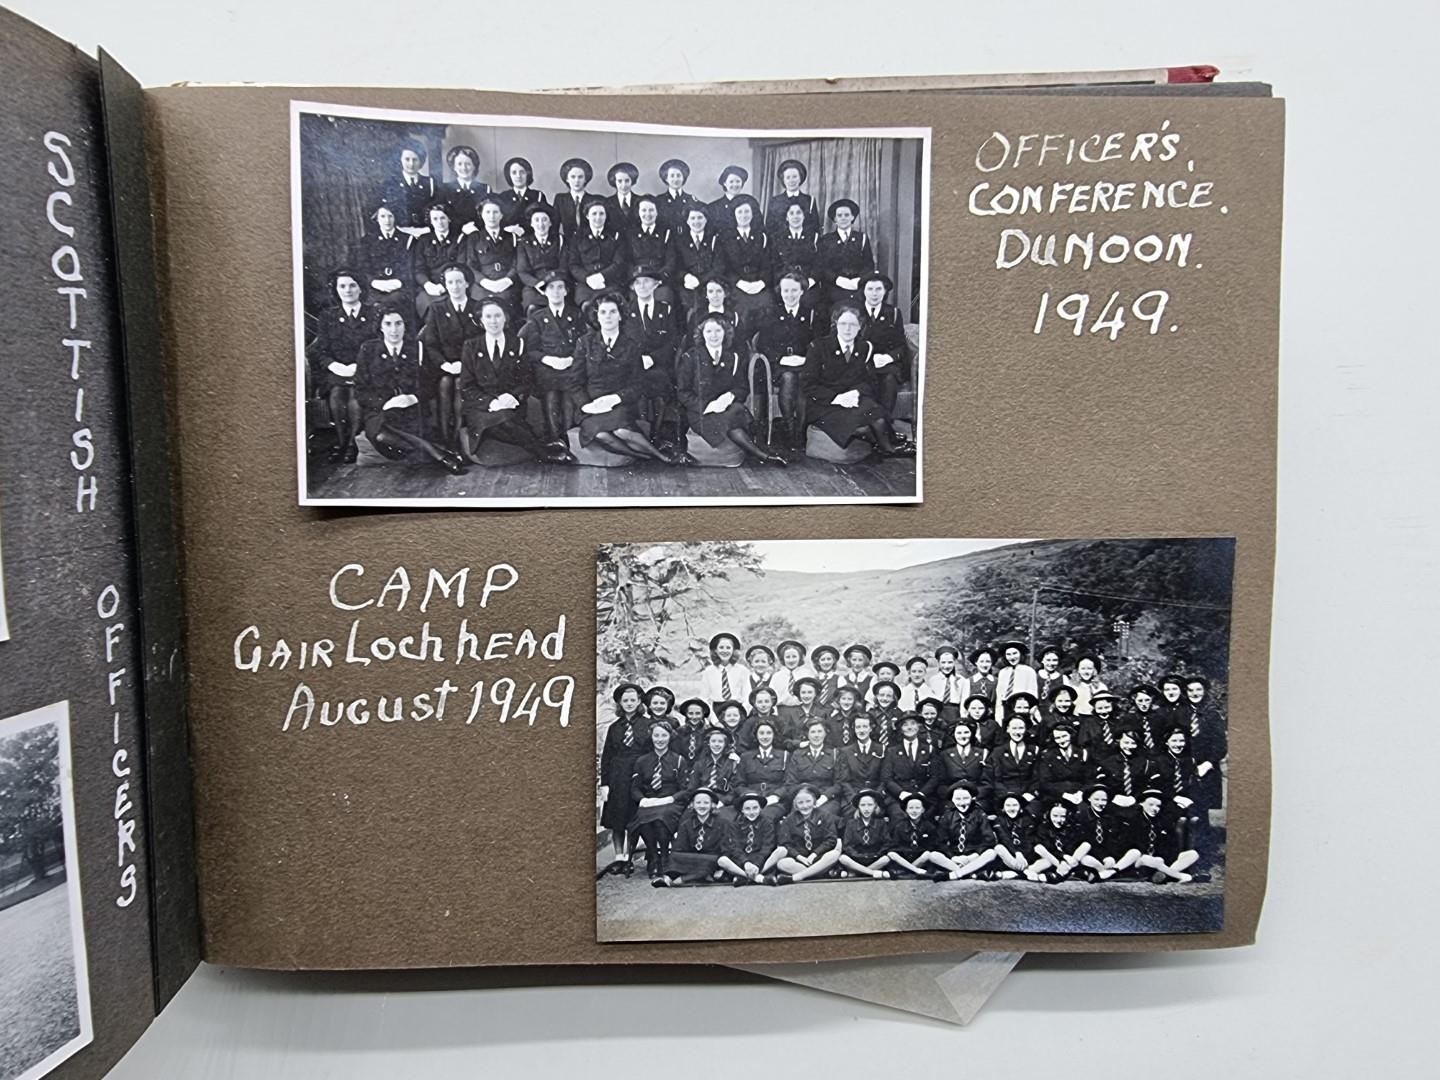 SCOTTISH OFFICERS
OFFICER'S.
CONFERENCE.
DUNOON.
1949.
CAMP
GAIRLochhEAD
AuGust 1949